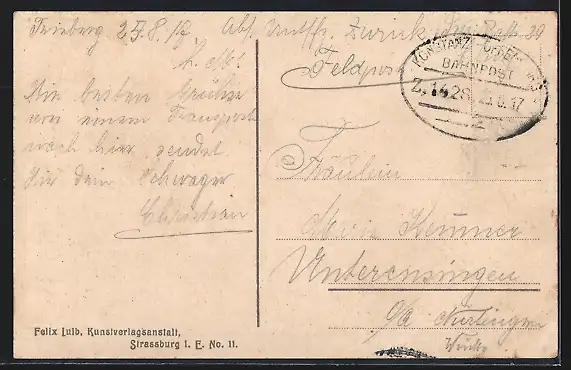 Triberg 25.8.17
L. M.!
Die besten Grüße
von einem Transport
nach hier sendet
Dir dein Schwager
Christian
Feldpost
KONSTANZ - OFFENBURG
BAHNPOST
Z. 1428 25.8.17
Fräulein
Maria Kemmer
Unterensingen
O/A Nürtingen
Württ.
Felix Luib, Kunstverlagsanstalt,
Strassburg i. E. No. 11.